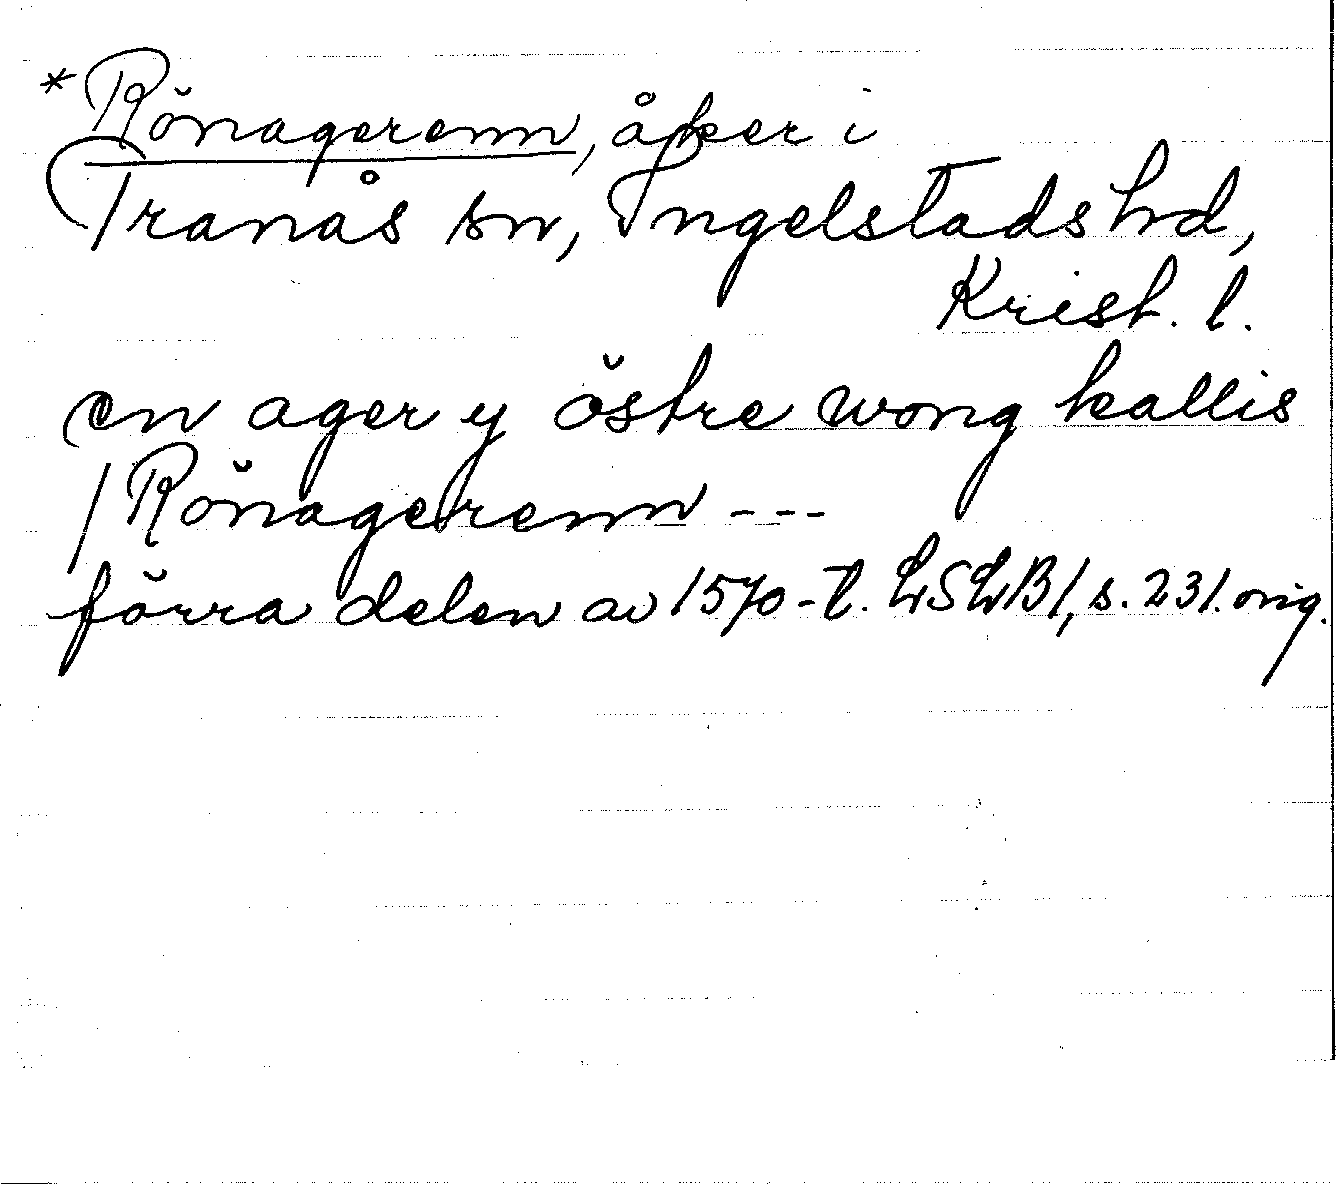 *Rönagerenn, åker i
Tranås sn, Ingelstads hd,
Krist. l.
en ager y östre wong kallis
/ Rönagerenn ---
förra delen av 1570-t. LSLB1, s. 231. orig.